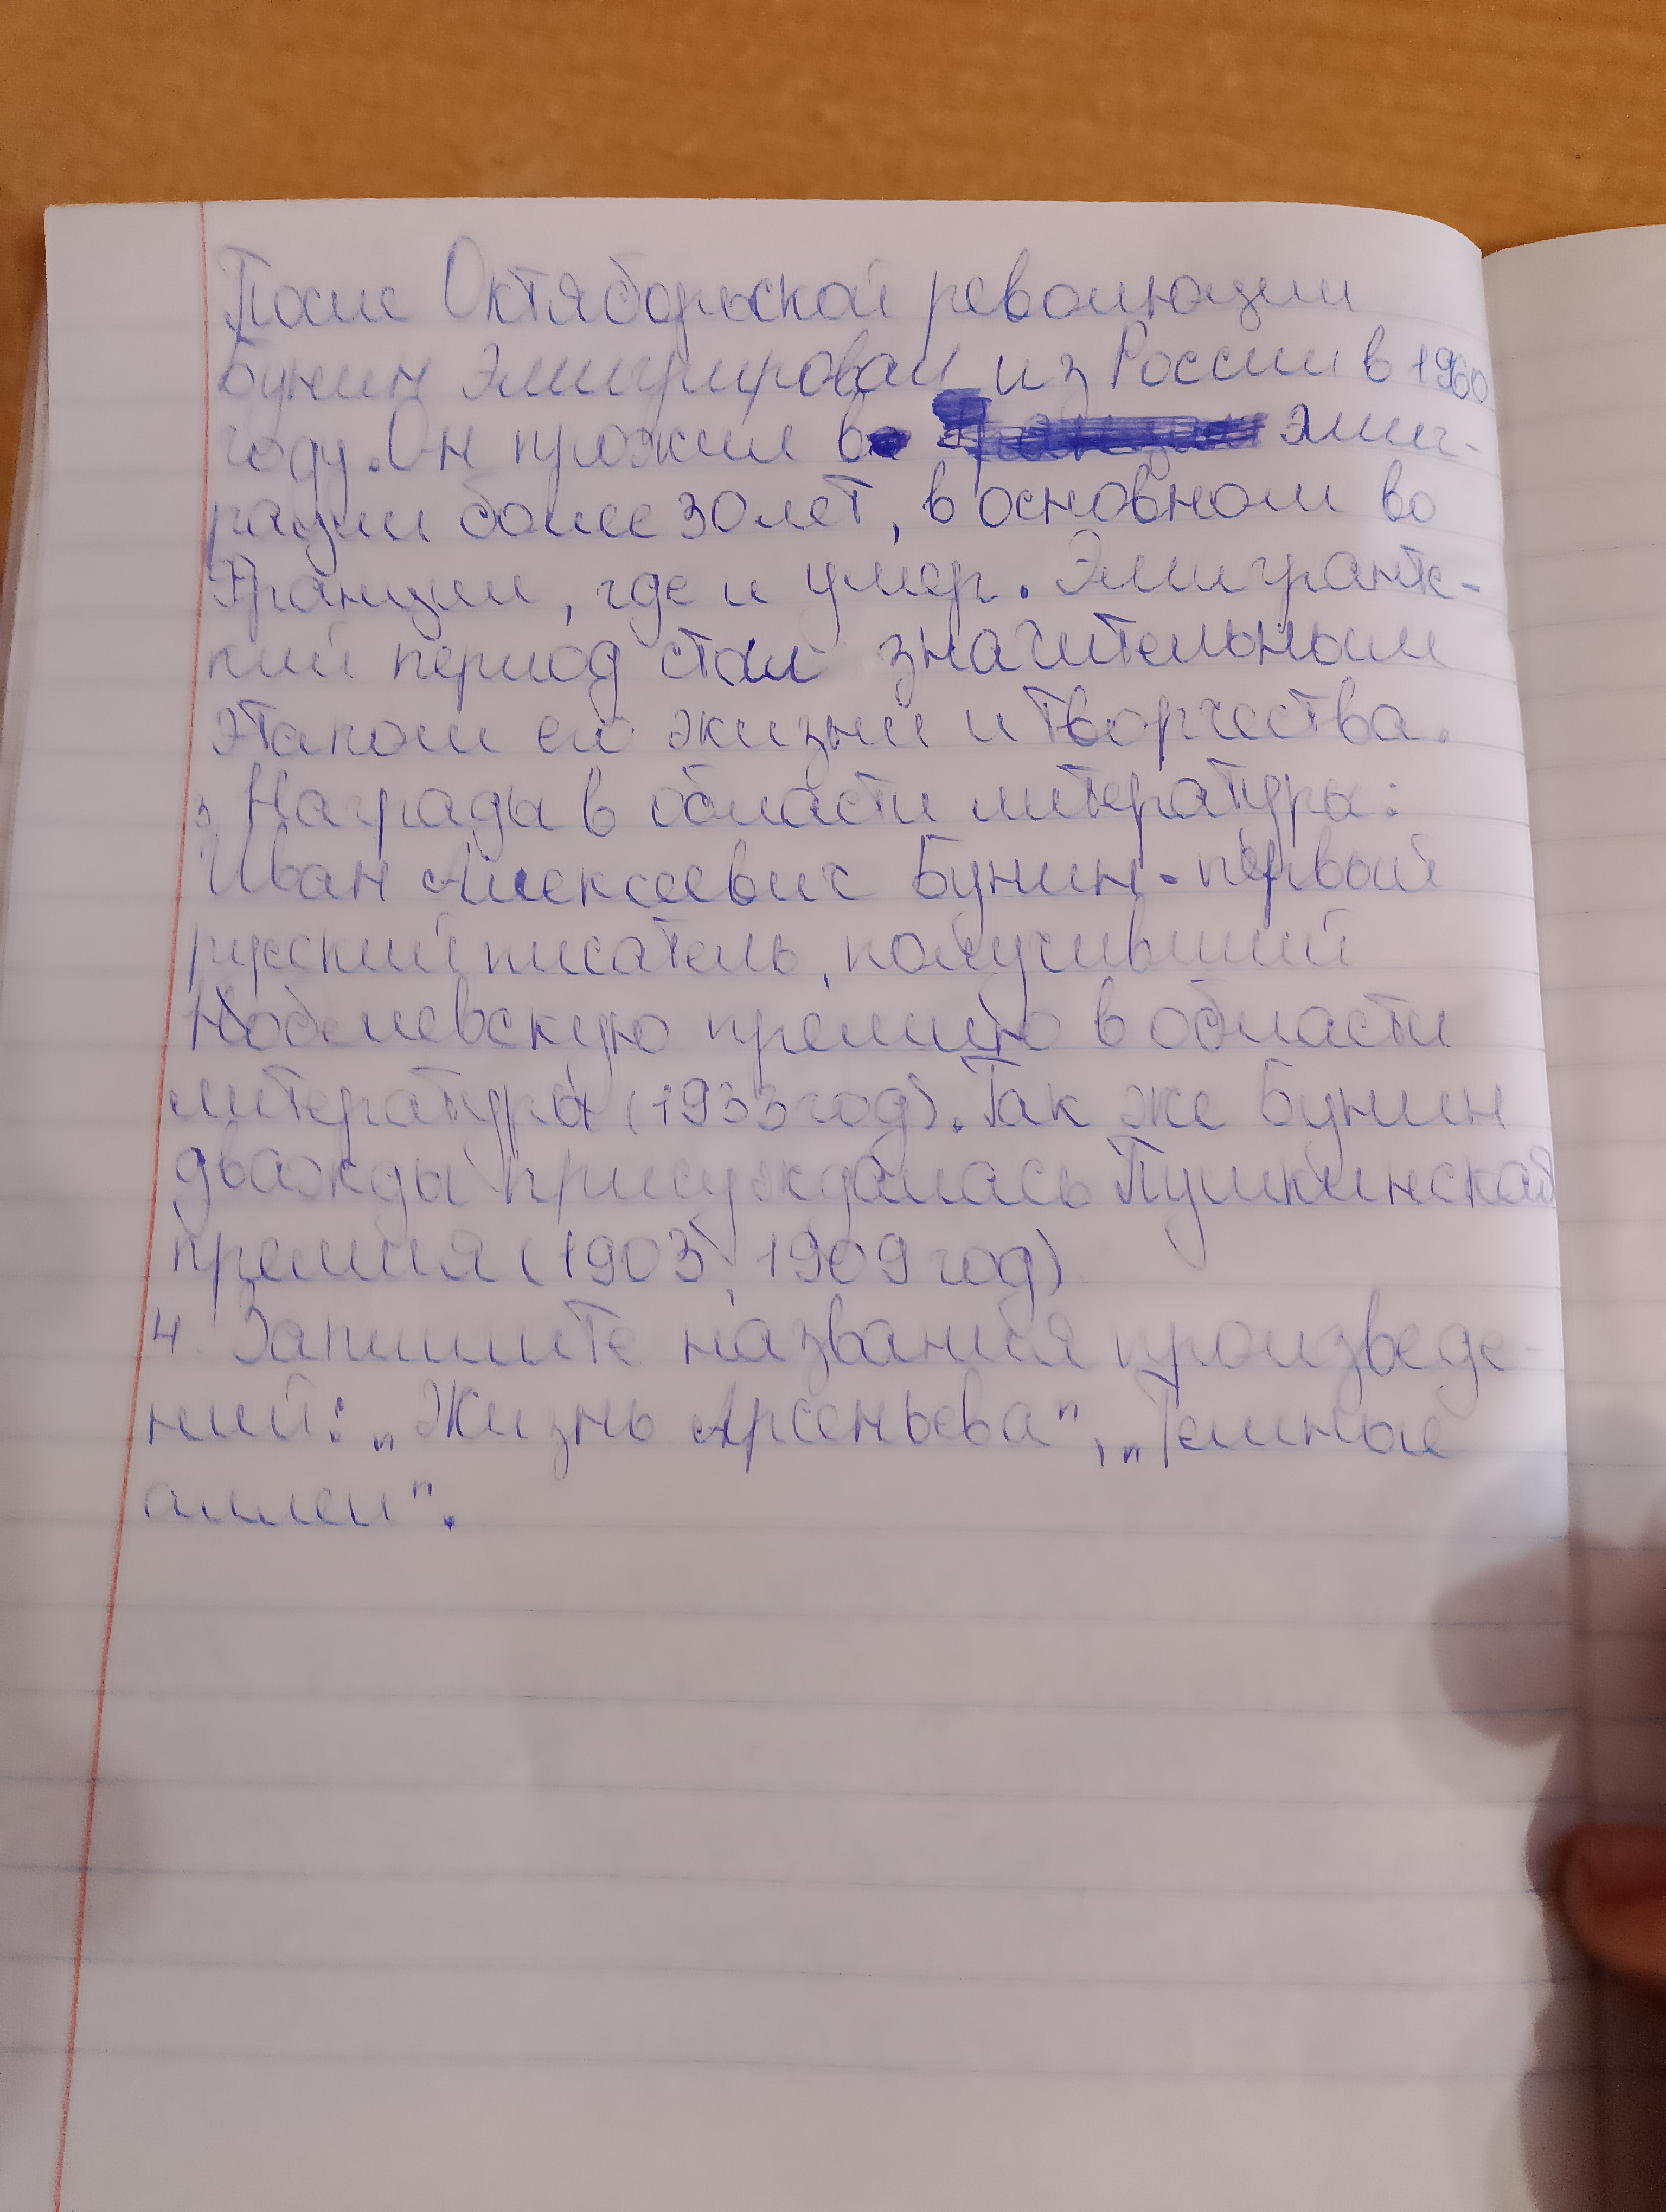 После Октябрьской революции
Бунин эмигрировал из России в 1960
году. Он прожил в эмиг-
рации более 30 лет, в основном во
Франции, где и умер. Эмигрантс-
кий период стал значительным
этапом его жизни и творчества.
3. Награды в области литературы:
Иван Алексеевич Бунин - первый
русский писатель, получивший
Нобелевскую премию в области
литературы (1933 год). Так же Бунин
дважды присуждалась Пушкинская
премия (1903, 1909 год)
4. Запишите названия произведе-
ний: „Жизнь Арсеньева", „Темные
аллеи".